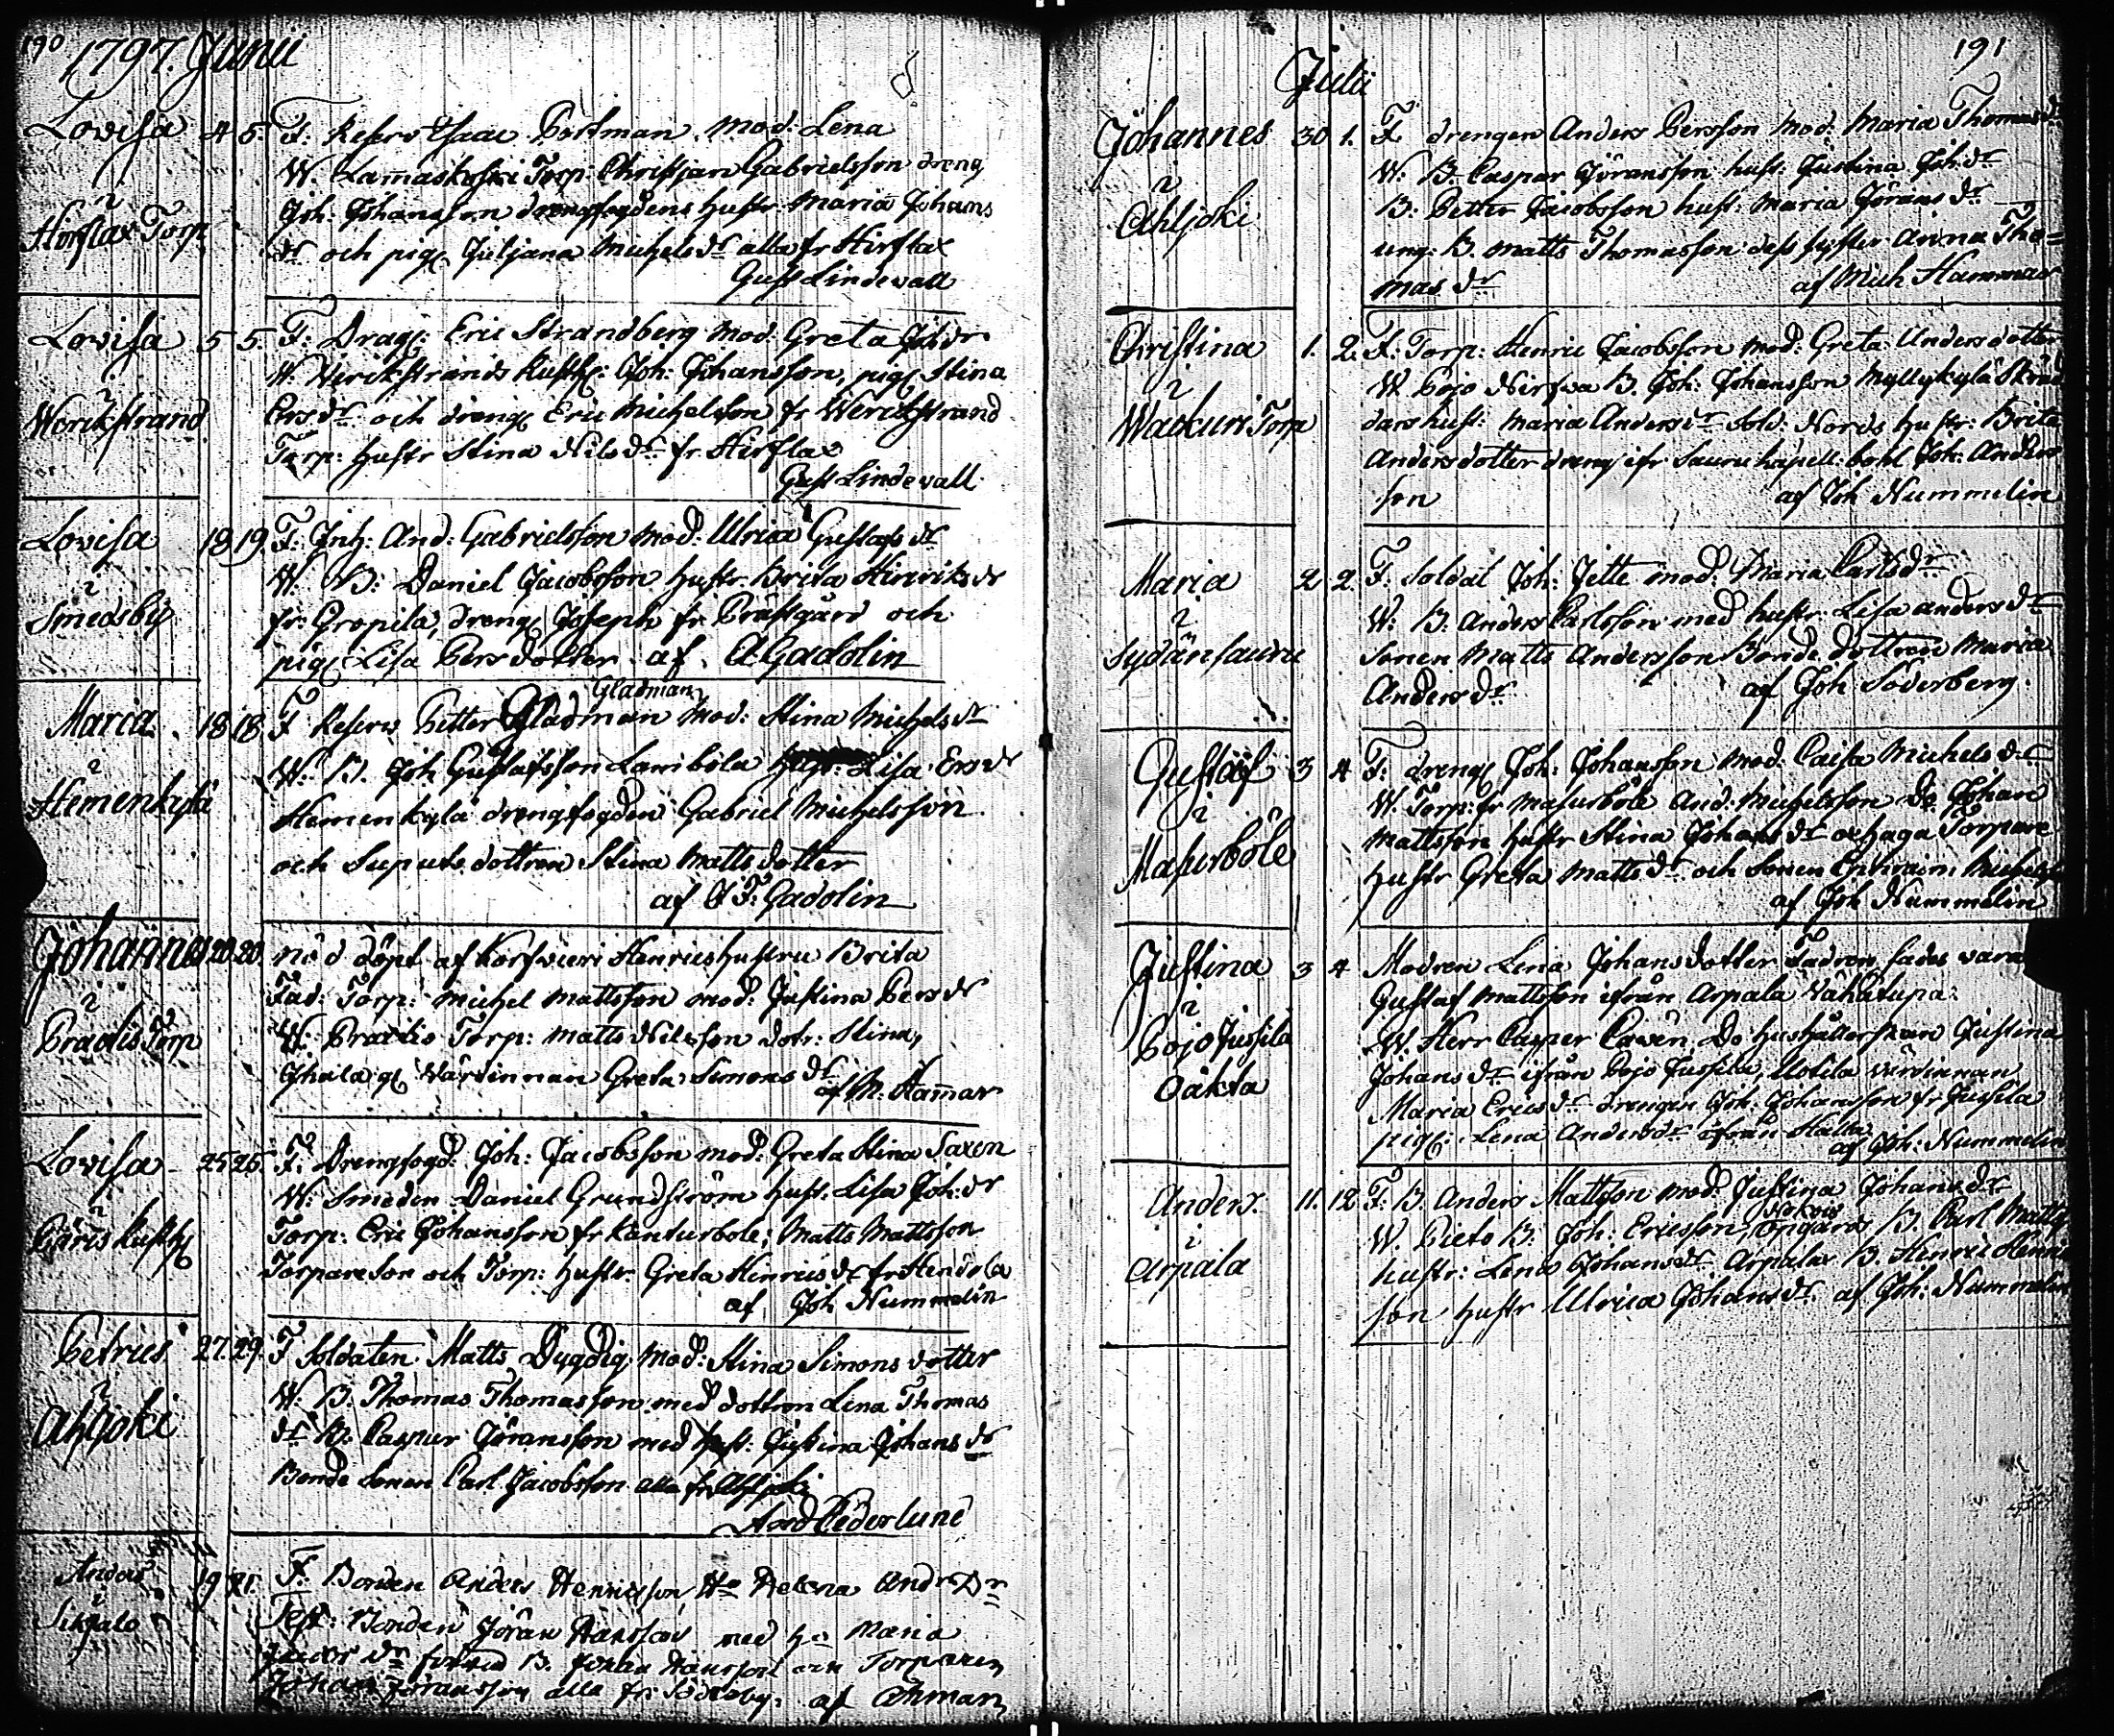 190
1797. Junii
Lovisa 4 5. F: Reserv Isaac Portman. Mod: Lena
W. Lamaskoski Torp: Christjan Gabrielsson dreng
Joh: Johansson drengfogdens hustr: Maria Johans
i
Hirslax Torp.
dr och pig Juljana Michels dr alla fr Hirslax
Gust Lindevall
Lovisa 5 5. F: Drag: Eric Strandberg mod: Greta Joh: dr
i
W: Werikstrands Rusth: Joh: Johansson, pig Stina
Werikstrand
Pers dr och dreng Eric Michelsson fr Werikstrand
Torp: hustr Stina Nils dr fr Hirslax
Gust Lindevall
Lovisa 18 19. F: Inh: And: Gabrielsson mod: Ulrica Gustafs dr
i
W. B: Daniel Jacobsson hustr. Brita Hinriks dr
Smedsby
fr: Gropila, dreng Joseph fr Prästgård och
pig Lisa Persdotter. af. A Gadolin
Gladman
Maria. 18 18. F Reserv Petter Gladman mod: Stina Michels dr
i
W. B. Joh Gustafsson Lambola Lisa Ers dr
Hemenkylä
Hemenkylä drengfogden Gabriel Michelsson
och dottren Stina Matts dotter
af J F: Gadolin
Johannes 20 20. nöd döpt af Henrics hustru Brita
i
Fad: Torp: Michel Mattsson mod: Justina Pers dr
Torp
W. Torp: Matts Nilsson dotr: Stina,
värdinnan Greta Simons dr
af M: Hammar
Lovisa 25 25. F: Drengfogd: Joh: Jacobsson mod: Greta Stina Saxen
i
W: Smeden Daniel Grundström hust: Lisa Joh: dr
Torp: Eric Johansson fr Kanturbole; Matts Mattsson
Torpareson och Torp: hustr Greta Hinrics dr fr
af Joh Nummelin
Petrus 27. 29. F Soldaten Matts Dygdig. Mod: Stina Simons dotter
i
W. B. Thomas Thomasson med dottren Lina Thomas
Ahljoki
dr B. Caspur Göransson med hust: Justina Johans dr
Bonde sonen Carl Jacobsson alla fr Ahljoki
And Cederlund
Anders 19 21. F. Bonden Anders Henricsson, H Helena And Dr
i
Test: Bonden Jöran Hansson med h Maria
dr B. Johan Hansson och Torparen
Johan Göransson alla fr af Ahman
191
Julii
Johannes 30 1. F. drengen Anders Persson mod: Maria Thomas dr
i
W: B: Caspar Göransson hust: Justina Joh: dr
Ahljoki
B: Petter Jacobsson hust: Maria Görans dr
ung: B. Matts Thomasson dess syster Anna Tho=
mas dr af Mich Hammar
Christina 1. 2. F: Torp: Henric Jacobsson mod: Greta Anders dotter
i
W Pojo B. Joh: Johansson Myllykylä Skräd
Wackuri Torp
dars hust: Maria Anders dr Sold: Nords hustr: Brita
Anders dotter dreng ifr Sauru kapell Joh: Anders
son af Joh Nummelin
Maria 2 2. F: Soldat Joh: Jette mod: Maria Carls dr
i
W: B: Anders Carlsson med hustr: Lisa Anders dr
Sydänsauru
sonen Matts Andersson Bonde dottren Maria
Anders dr af Joh Söderberg.
Gustaf 3 4 F: dreng Joh: Johansson mod: Caisa Michels dr
i
W. Torp: fr Masurböle And: Michelsson Do Johan
Masurböle
Mattsson hustr Stina Johans dr Torpare
hustr Greta Matts dr och sonen Ephraim
af Joh Nummelin
Justina 3 4 Modren Lena Johans dotter Fadren sades vara
i
Gustaf Mattsson ifrån Arpala
Pojo Jussila
W. Herr Casper Caven Do hushållerskan Justina
oäkta
Johans dr ifrån Pojo Jussila, värdinnan
Maria Erics dr drengen Joh: Johansson fr Jussila
pig: Lena Anders dr ifrån
af Joh: Nummelin
Anders. 11. 12. F: B. Anders Mattsson mod: Justina Johans dr
i
W. B. Joh: Ericsson, B. Carl Matts
Arpala
hustr: Lena Johans dr Arpala B. Hinric Henrics
son hustr Ulrica Johans dr af Joh: Nummelin